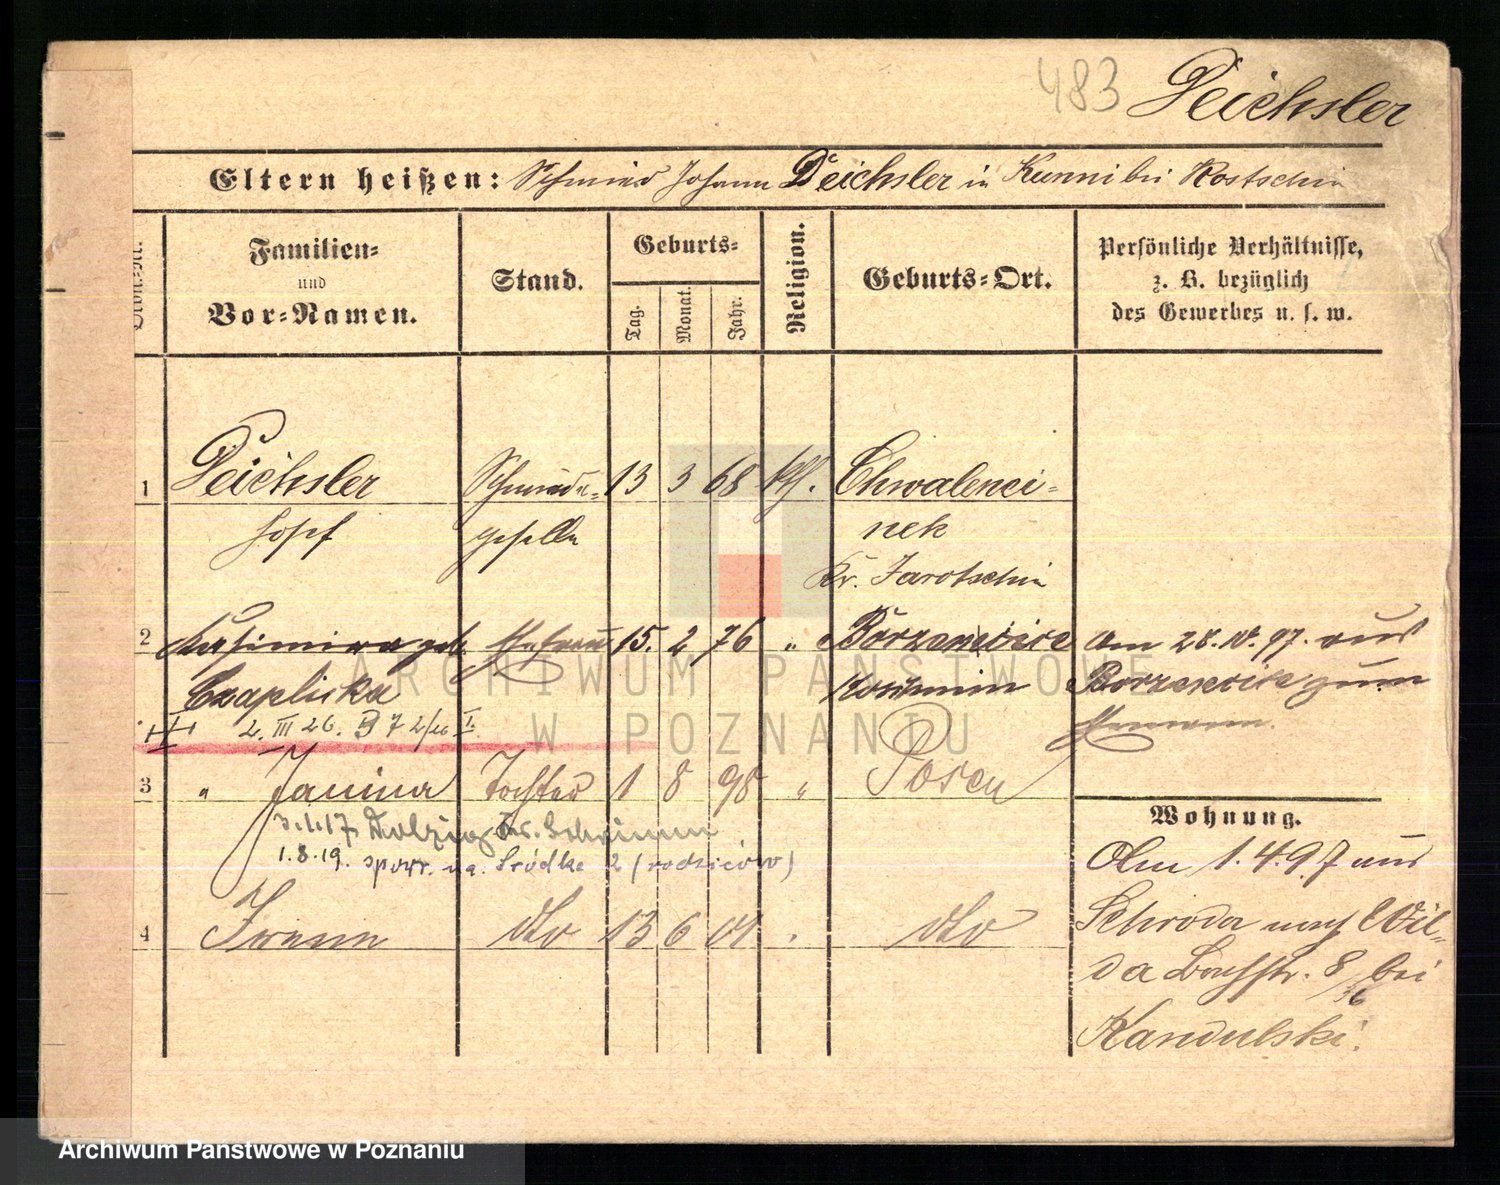 483 Deichsler
Eltern heißen: Schmied Johann Deichsler in Kunni bei Kostschin
Familien-
und
Vor-Namen.
Stand.
Geburts-
Tag.
Monat.
Jahr.
Religion.
Geburts-Ort.
Persönliche Verhältnisse,
z. B. bezüglich
des Gewerbes u. s. w.
1 Deichsler Schmiede- 13 3 68 kth. Chwalenci-
Josef geselle nek
Kr. Jarotschin
2 Kasimira geb. Ehefrau 15. 2 76 " Borzencice Am 28. 10. 97. aus
Czaplicka Koschmin Borzencice zum
2. III 26. Ehemann.
3 " Janina Tochter 1 8 98 " Posen
3.1.17. Dolzig Kr. Schrimm
1.8.19. spow. na. Śródke 2 (rodziców)
4 Irena dto 13 6 01 . dto
Wohnung.
Am 1.4.97 aus
Schroda nach Wil-
da Bachstr. 8 bei
36
Kandulski.
ARCHIWUM PAŃSTWOWE
W POZNANIU
Archiwum Państwowe w Poznaniu